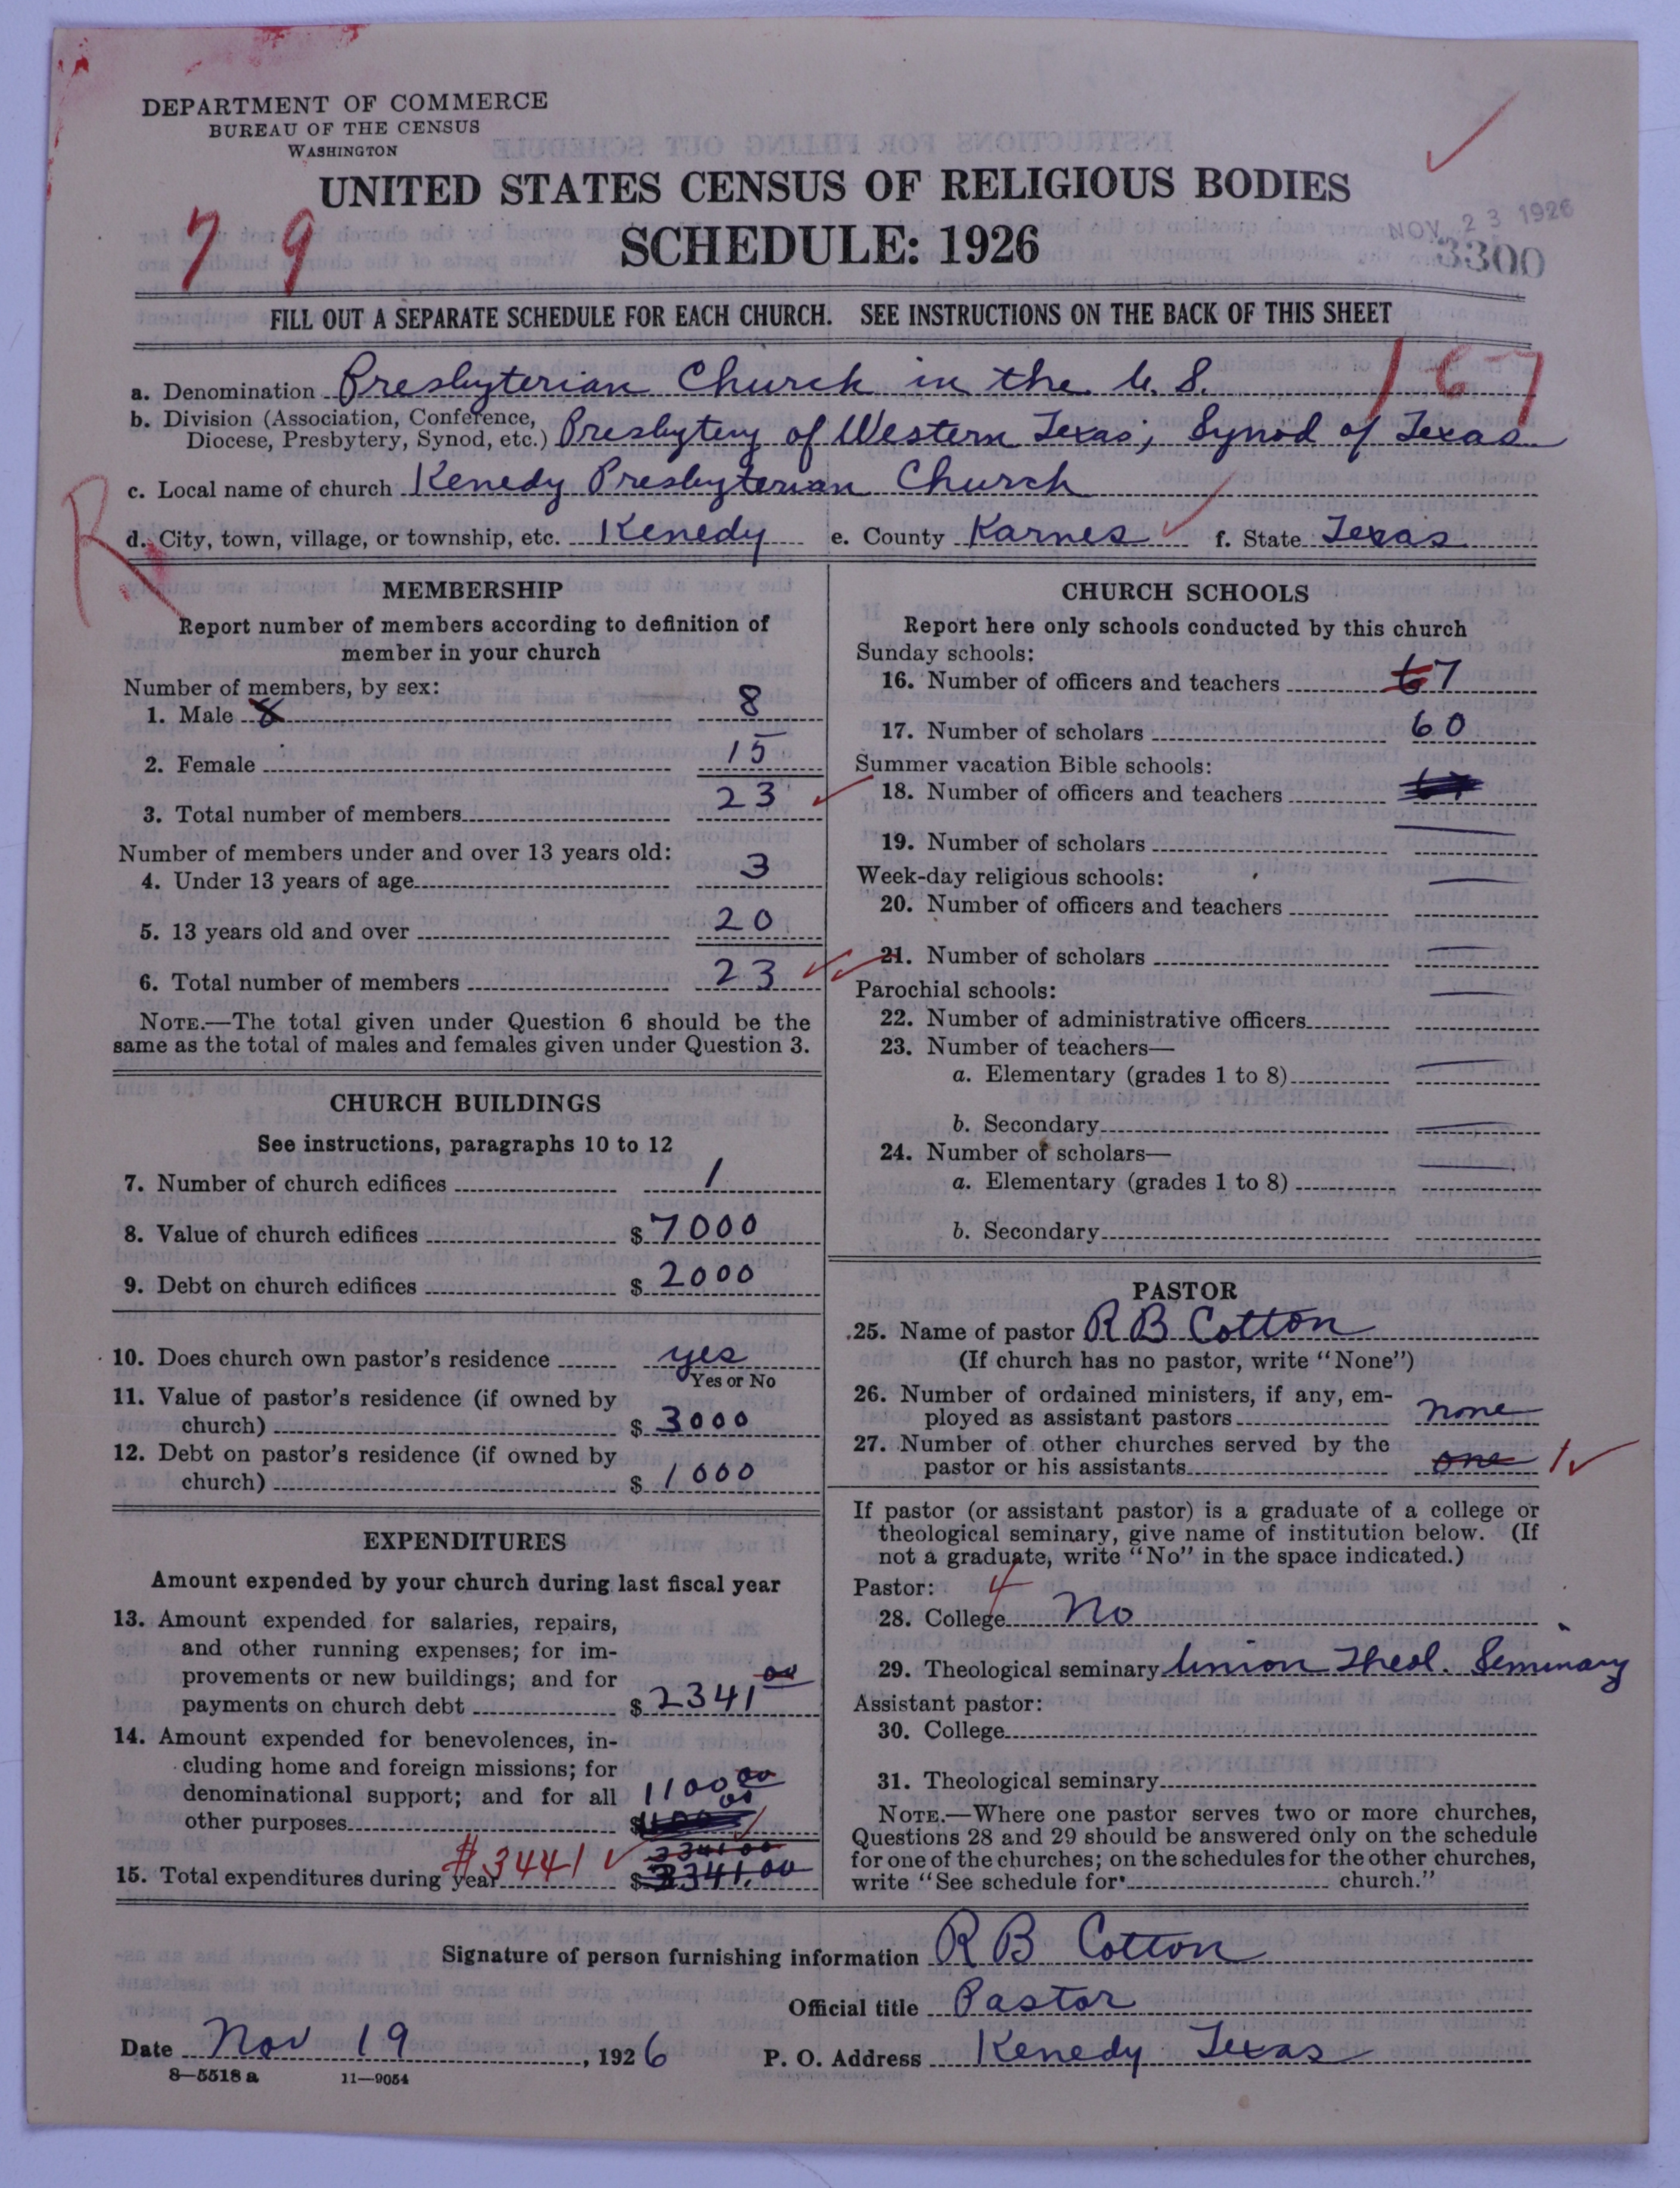 DEPARTMENT OF COMMERCE
BUREAU OF THE CENSUS
WASHINGTON
UNITED STATES CENSUS OF RELIGIOUS BODIES
SCHEDULE: 1926
7 9
NOV 23 1926
3300
FILL OUT A SEPARATE SCHEDULE FOR EACH CHURCH. SEE INSTRUCTIONS ON THE BACK OF THIS SHEET
167
a. Denomination Presbyterian Church in the U. S.
b. Division (Association, Conference,
Diocese, Presbytery, Synod, etc.) Presbytery of Western Texas; Synod of Texas
c. Local name of church Kenedy Presbyterian Church
R
d. City, town, village, or township, etc. Kenedy e. County Karnes f. State Texas
MEMBERSHIP
Report number of members according to definition of
member in your church
Number of members, by sex:
1. Male 8 8
2. Female 15
3. Total number of members 23
Number of members under and over 13 years old:
4. Under 13 years of age 3
5. 13 years old and over 20
6. Total number of members 23
NOTE.—The total given under Question 6 should be the
same as the total of males and females given under Question 3.
CHURCH BUILDINGS
See instructions, paragraphs 10 to 12
7. Number of church edifices 1
8. Value of church edifices $ 7000
9. Debt on church edifices $ 2000
10. Does church own pastor's residence yes
Yes or No
11. Value of pastor's residence (if owned by
church) $ 3000
12. Debt on pastor's residence (if owned by
church) $ 1000
EXPENDITURES
Amount expended by your church during last fiscal year
13. Amount expended for salaries, repairs,
and other running expenses; for im-
provements or new buildings; and for
payments on church debt $ 2341 00
14. Amount expended for benevolences, in-
cluding home and foreign missions; for
denominational support; and for all 1100 00
other purposes $
3341 00
15. Total expenditures during year $3441 $ 3341.00
CHURCH SCHOOLS
Report here only schools conducted by this church
Sunday schools:
16. Number of officers and teachers 6 7
17. Number of scholars 60
Summer vacation Bible schools:
18. Number of officers and teachers
19. Number of scholars
Week-day religious schools:
20. Number of officers and teachers
21. Number of scholars
Parochial schools:
22. Number of administrative officers
23. Number of teachers—
a. Elementary (grades 1 to 8)
b. Secondary
24. Number of scholars—
a. Elementary (grades 1 to 8)
b. Secondary
PASTOR
25. Name of pastor R B Cotton
(If church has no pastor, write "None")
26. Number of ordained ministers, if any, em-
ployed as assistant pastors none
27. Number of other churches served by the
pastor or his assistants one 1
If pastor (or assistant pastor) is a graduate of a college or
theological seminary, give name of institution below. (If
not a graduate, write "No" in the space indicated.)
Pastor: 4
28. College No
29. Theological seminary Union Theol. Seminary
Assistant pastor:
30. College
31. Theological seminary
NOTE.—Where one pastor serves two or more churches,
Questions 28 and 29 should be answered only on the schedule
for one of the churches; on the schedules for the other churches,
write "See schedule for church."
Signature of person furnishing information R B Cotton
Official title Pastor
Date Nov 19, 1926 P. O. Address Kenedy Texas
8—5518 a 11—9054